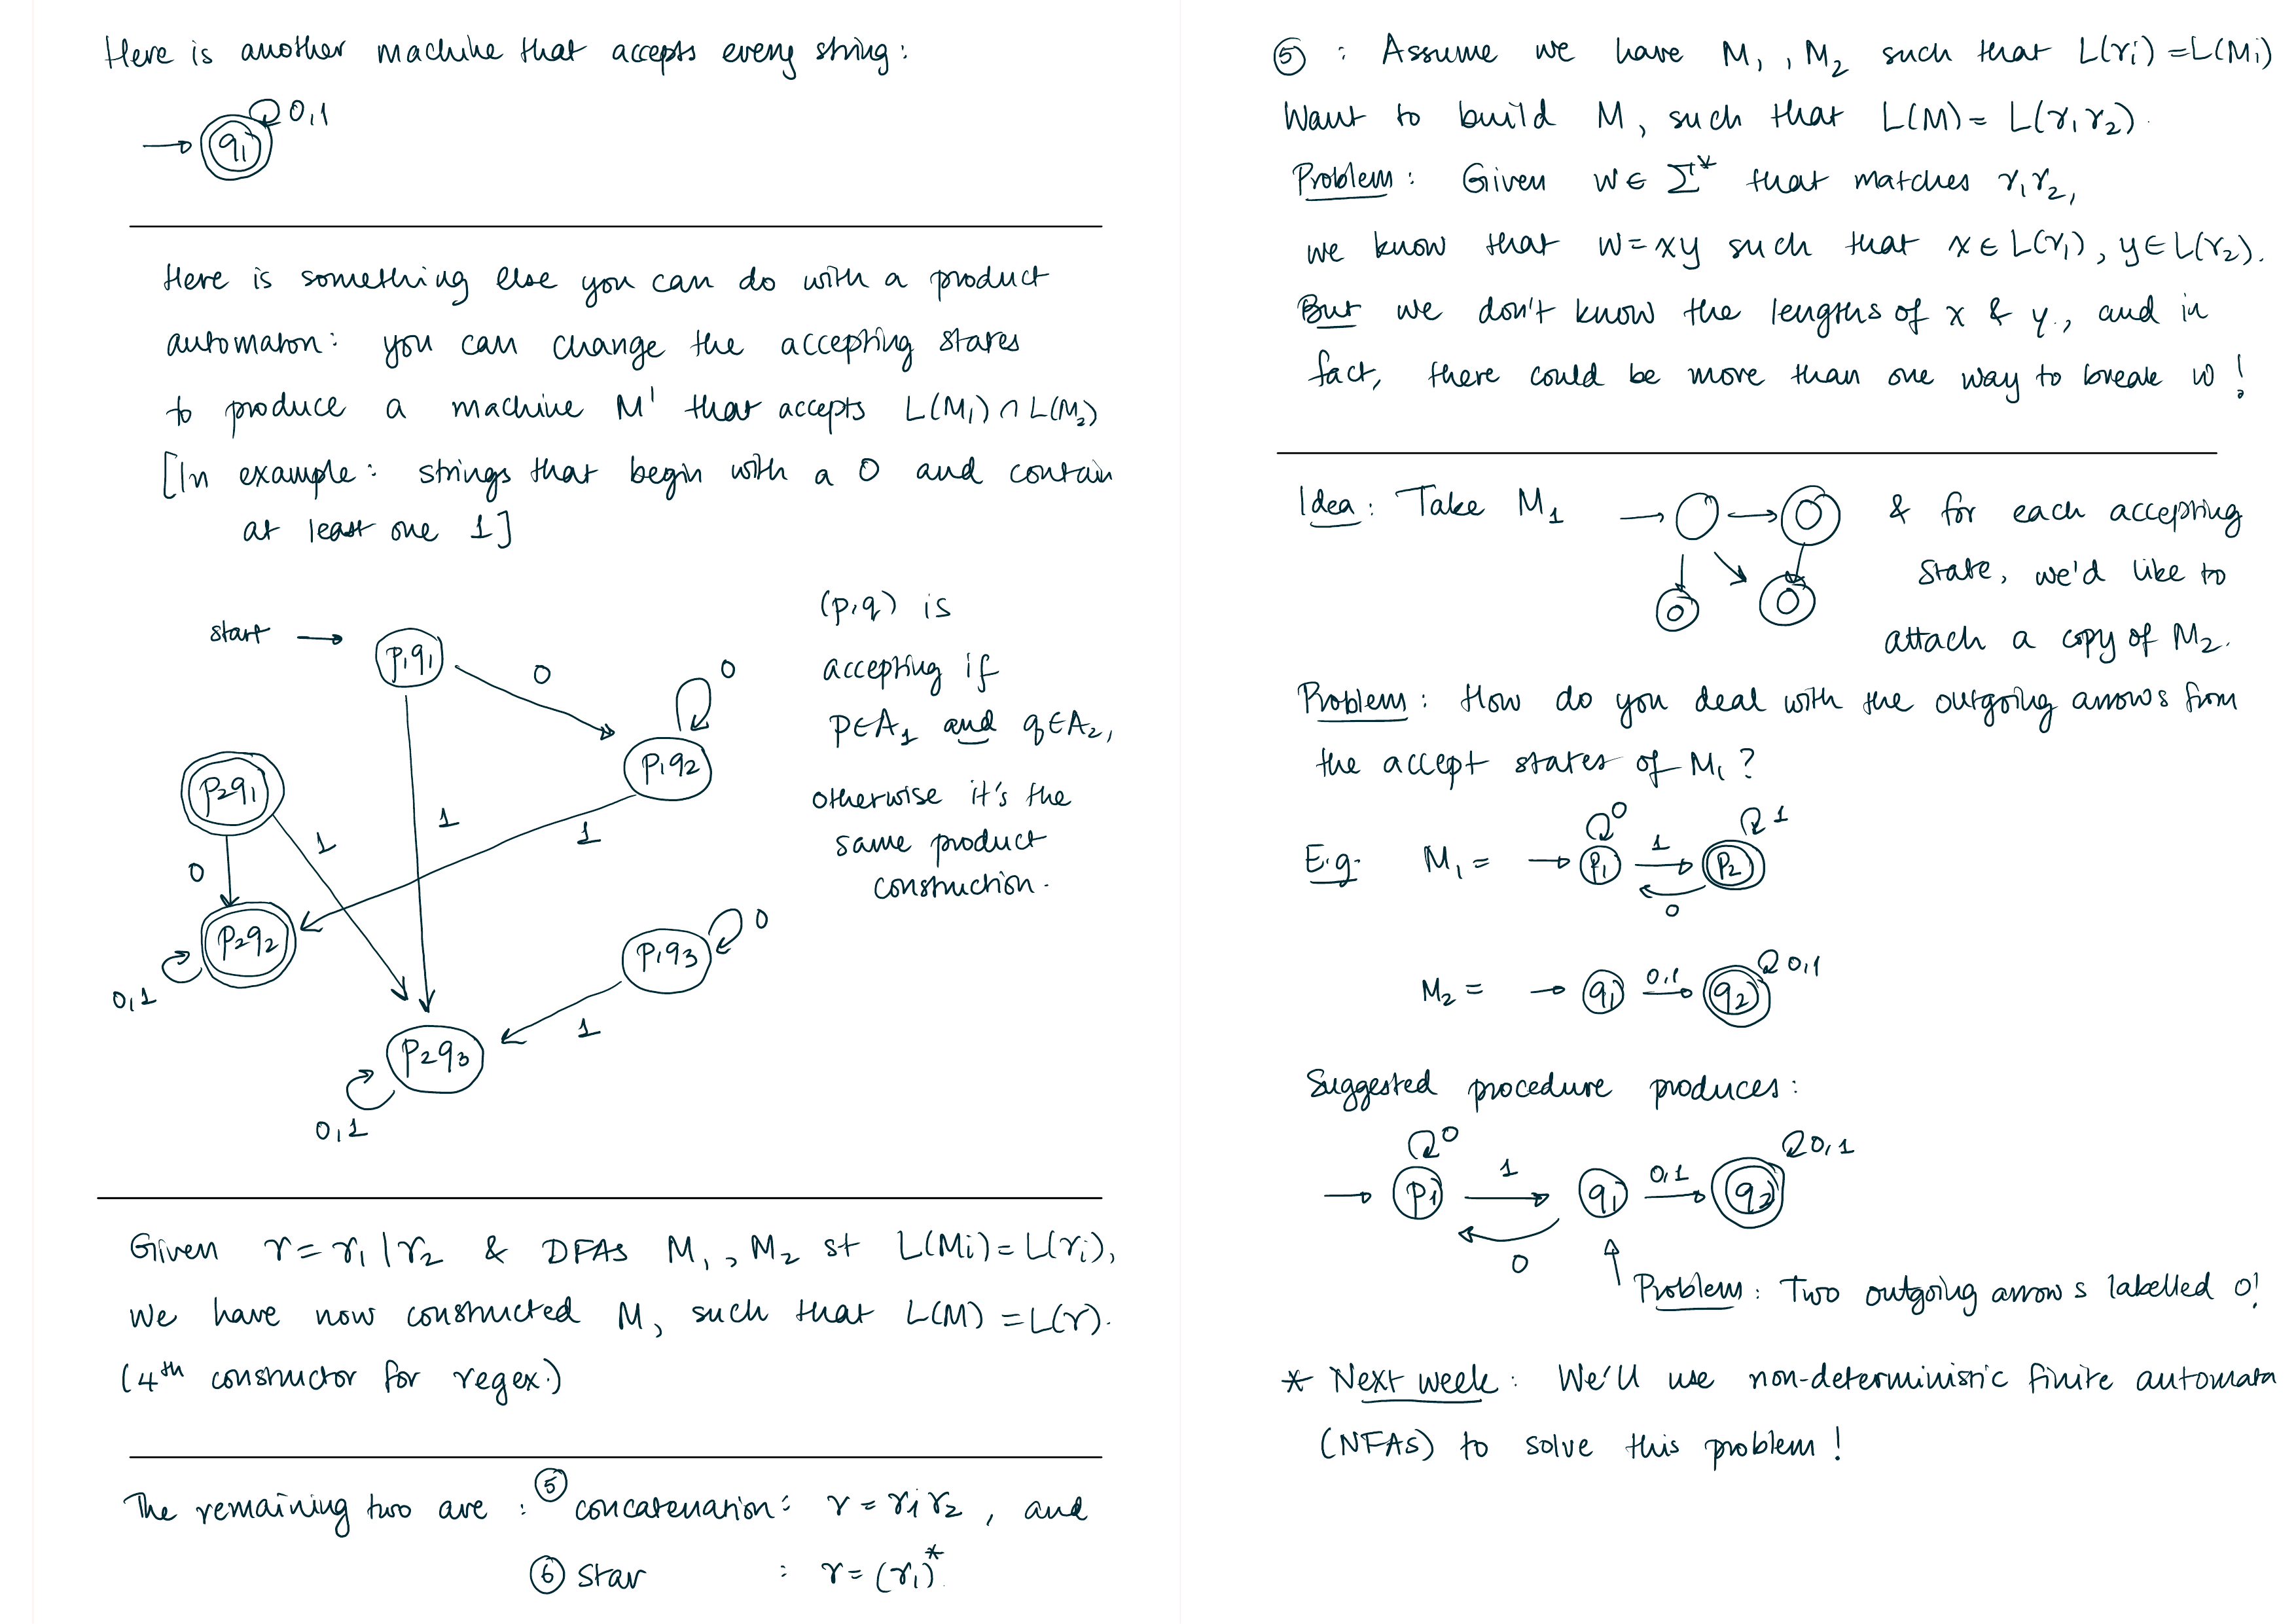 Here is another machine that accepts every string:
0,1
q₁
Here is something else you can do with a product
automaton: you can change the accepting states
to produce a machine M' that accepts L(M₁) ∩ L(M₂)
[In example: strings that begin with a 0 and contain
at least one 1]
start
p₁q₁
0
0
p₁q₂
p₂q₁
1
1
1
0
p₂q₂
0,1
p₁q₃
0
1
p₂q₃
0,1
(p,q) is
accepting if
p∈A₁ and q∈A₂,
otherwise it's the
same product
construction.
Given r = r₁|r₂ & DFAs M₁, M₂ st L(Mi) = L(ri),
we have now constructed M, such that L(M) = L(r).
(4th constructor for regex.)
The remaining two are : ⑤ concatenation: r = r₁r₂, and
⑥ Star : r = (r₁)*
⑤ : Assume we have M₁, M₂ such that L(ri) = L(Mi)
Want to build M, such that L(M) = L(r₁r₂).
Problem: Given w ∈ Σ* that matches r₁r₂,
we know that w = xy such that x ∈ L(r₁), y ∈ L(r₂).
But we don't know the lengths of x & y, and in
fact, there could be more than one way to break w!
Idea: Take M₁ & for each accepting
state, we'd like to
attach a copy of M₂.
Problem: How do you deal with the outgoing arrows from
the accept states of M₁?
E.g. M₁ = p₁ 0 1 p₂ 1 0
M₂ = q₁ 0,1 q₂ 0,1
Suggested procedure produces:
p₁ 0 1 0 q₁ 0,1 q₂ 0,1
Problem: Two outgoing arrows labelled 0!
* Next week: We'll use non-deterministic finite automata
(NFAs) to solve this problem!